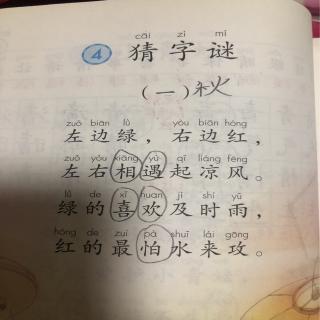 cāi zì mí
4 猜字谜
（一）秋
zuǒ biān lǜ yòu biān hóng
左边绿，右边红，
zuǒ yòu xiāng yù qǐ liáng fēng
左右相遇起凉风。
lǜ de xǐ huan jí shí yǔ
绿的喜欢及时雨，
hóng de zuì pà shuǐ lái gōng
红的最怕水来攻。